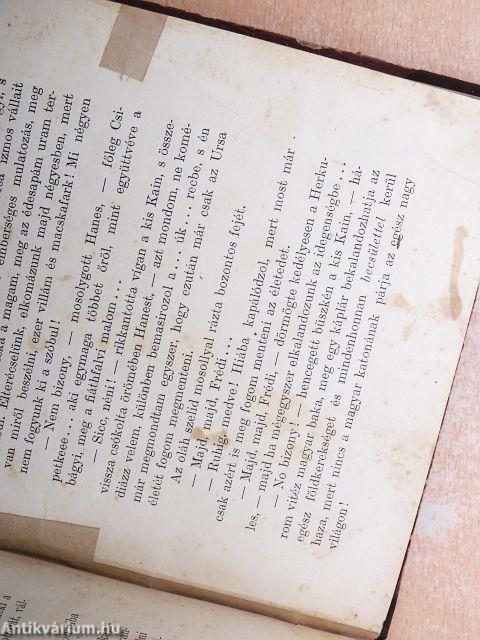 emberséges mulatozás, meg
van miről beszélni, elkomázunk majd négyesben, mert
nem fogyunk ki a szóbul! ezer villám és macskafark! Mi négyen
— Nem bizony, — mosolygott Hanes, — főleg Csi-
petkeee... aki egymaga többet őröl, mint együttvéve a
bágyi, meg a fiáthfalvi malom...
— Sicc, néni! — rikkantotta vigan a kis Kain, s össze-
vissza csókolta örömében Hanest, — azt mondom, ne komé-
diázz velem, különben bemasirozol a... úk... recbe, s én
már megmondtam egyszer, hogy ezután már csak az Ursa
életét fogom megmenteni.
Az oláh szelid mosollyal rázta bozontos fejét.
— Majd, majd, Frédi...
— Ruhig, medve! Hiába kapálódzol, mert most már
csak azért is meg fogom menteni az életedet.
— Majd, majd, Frédi, — dörmögte kedélyesen a Herku-
les, — majd ha mégegyszer elkalandozunk az idegenségbe...
— No bizony! — hencegett büszkén a kis Kain, — há-
rom vitéz magyar baka, meg egy káplár bekalandozhatja az
egész földkerekséget és mindenhonnan becsülettel kerül
haza, mert nincs a magyar katonának párja az egész nagy
világon!
Antikvárium.hu